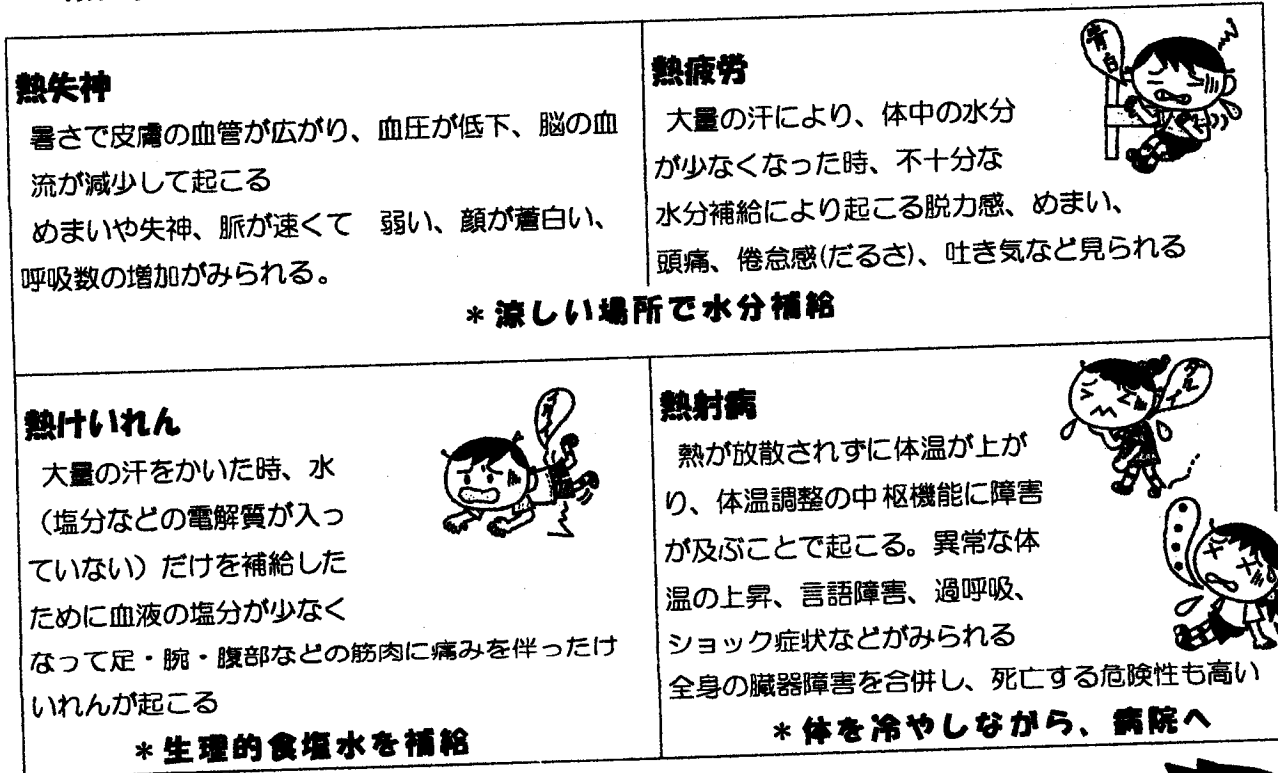 熱失神
暑さで皮膚の血管が広がり、血圧が低下、脳の血
流が減少して起こる
めまいや失神、脈が速くて 弱い、顔が蒼白い、
呼吸数の増加がみられる。
熱疲労
青白
大量の汗により、体中の水分
が少なくなった時、不十分な
水分補給により起こる脱力感、めまい、
頭痛、倦怠感(だるさ)、吐き気など見られる
＊涼しい場所で水分補給
熱けいれん
大量の汗をかいた時、水
（塩分などの電解質が入っ
ていない）だけを補給した
ために血液の塩分が少なく
なって足・腕・腹部などの筋肉に痛みを伴ったけ
いれんが起こる
＊生理的食塩水を補給
熱射病
ダルイ
熱が放散されずに体温が上が
り、体温調整の中枢機能に障害
が及ぶことで起こる。異常な体
温の上昇、言語障害、過呼吸、
ショック症状などがみられる
全身の臓器障害を合併し、死亡する危険性も高い
＊体を冷やしながら、病院へ